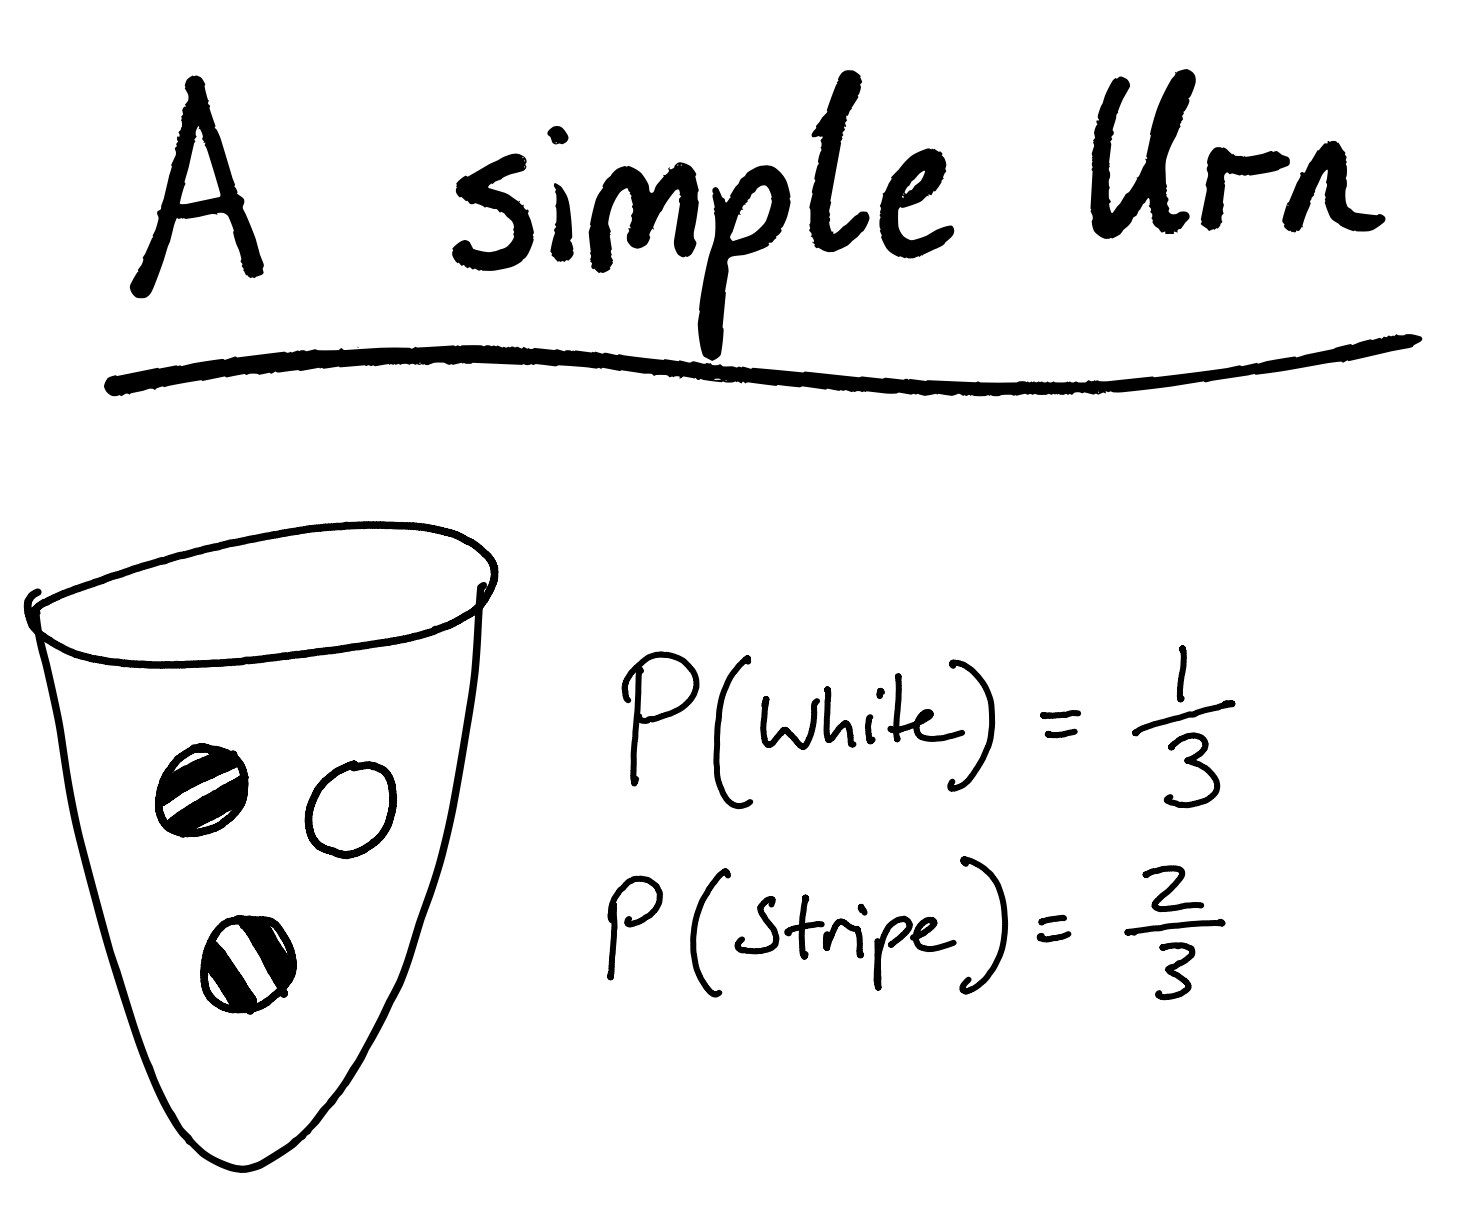 A simple Urn
P(white) = 1/3
P(stripe) = 2/3